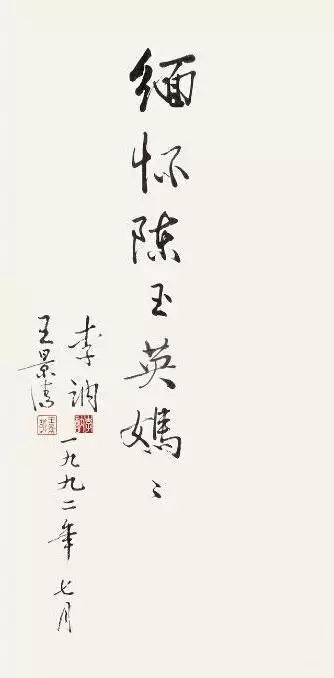 緬怀陈玉英媽〻
李讷
王景清
一九九二年七月